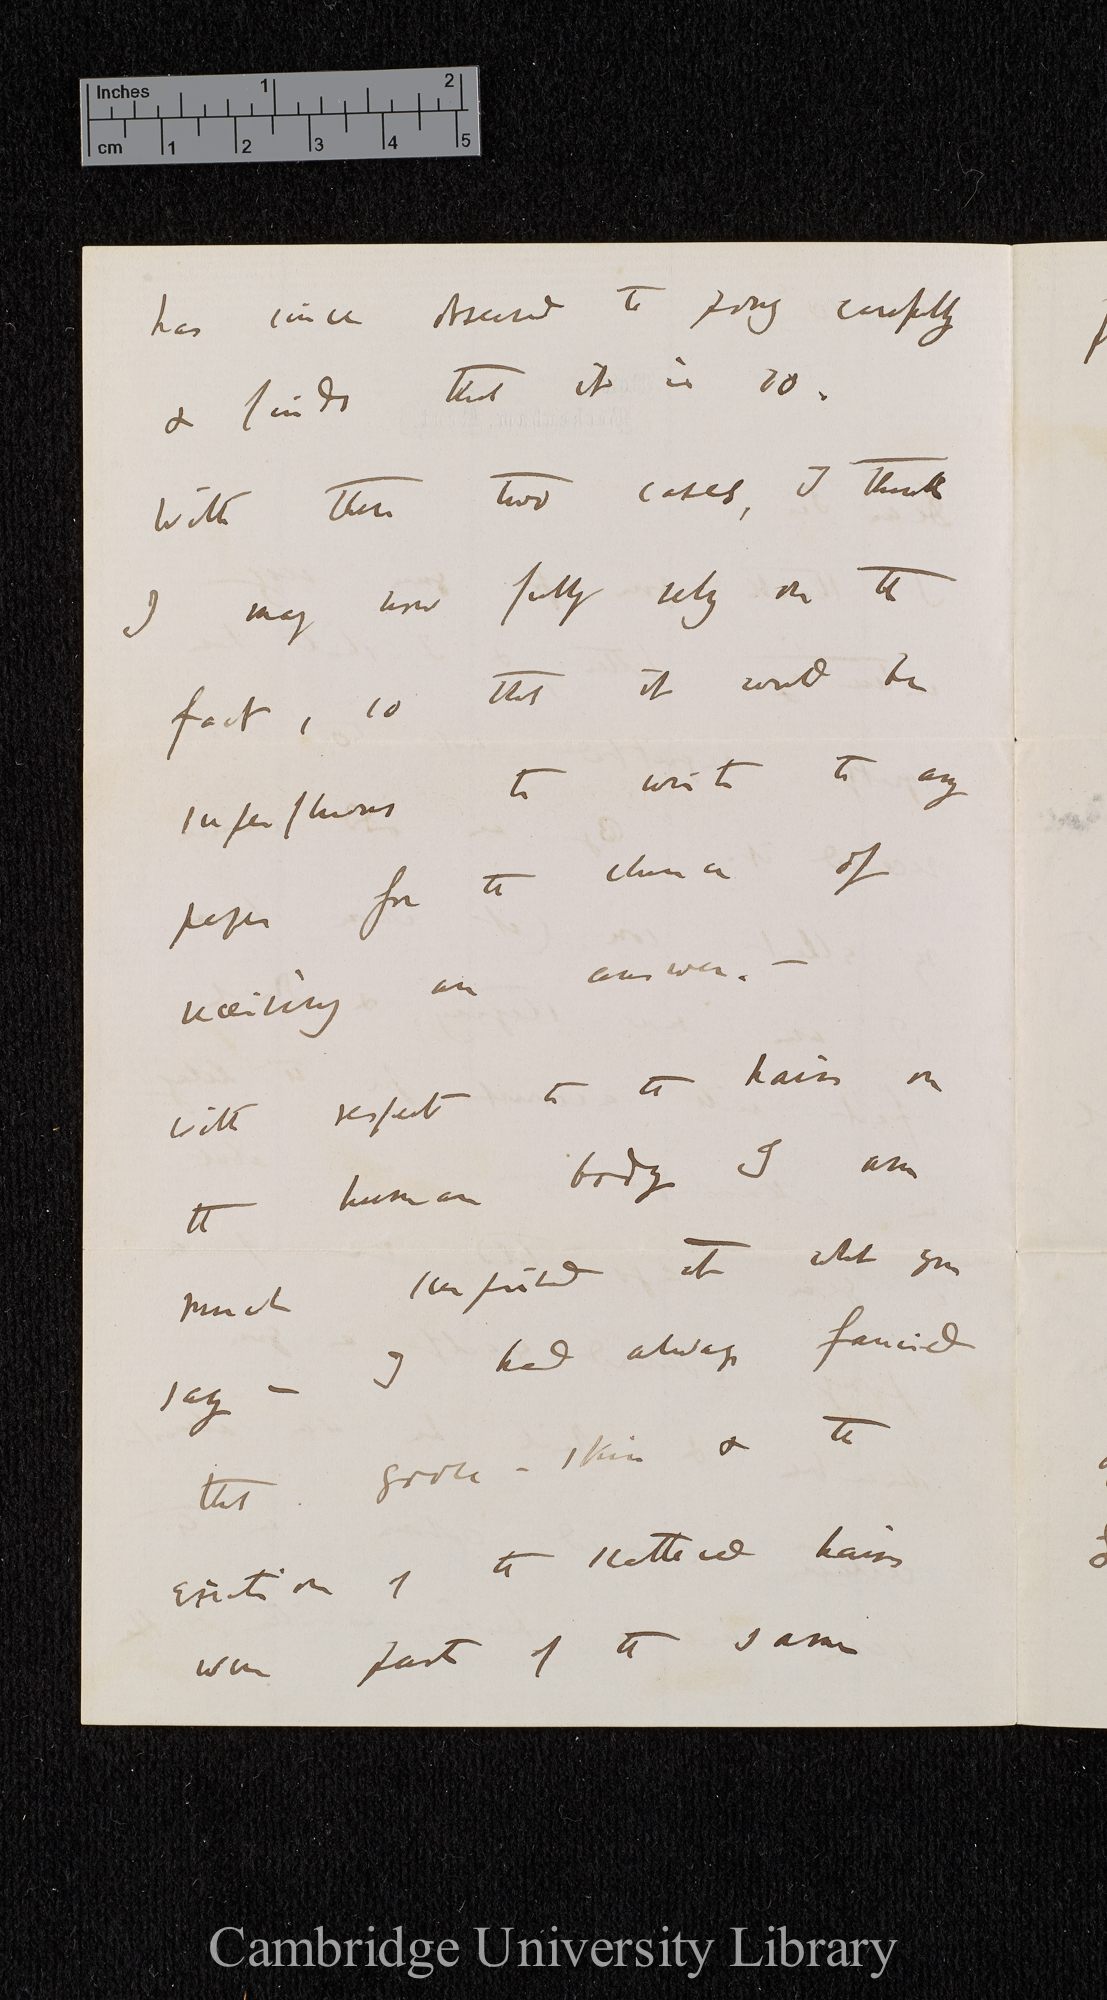 Inches 1 2
cm 1 2 3 4 5
has since observed the pony carefully
& finds that it is so.
With these two cases, I think
I may now fully rely on the
fact, so that it would be
superfluous to write to any
paper for the chance of
receiving an answer. —
With respect to the hairs on
the human body I am
much surprised at what you
say — I had always fancied
that goose-skin & the
erection of the scattered hairs
were part of the same
Cambridge University Library